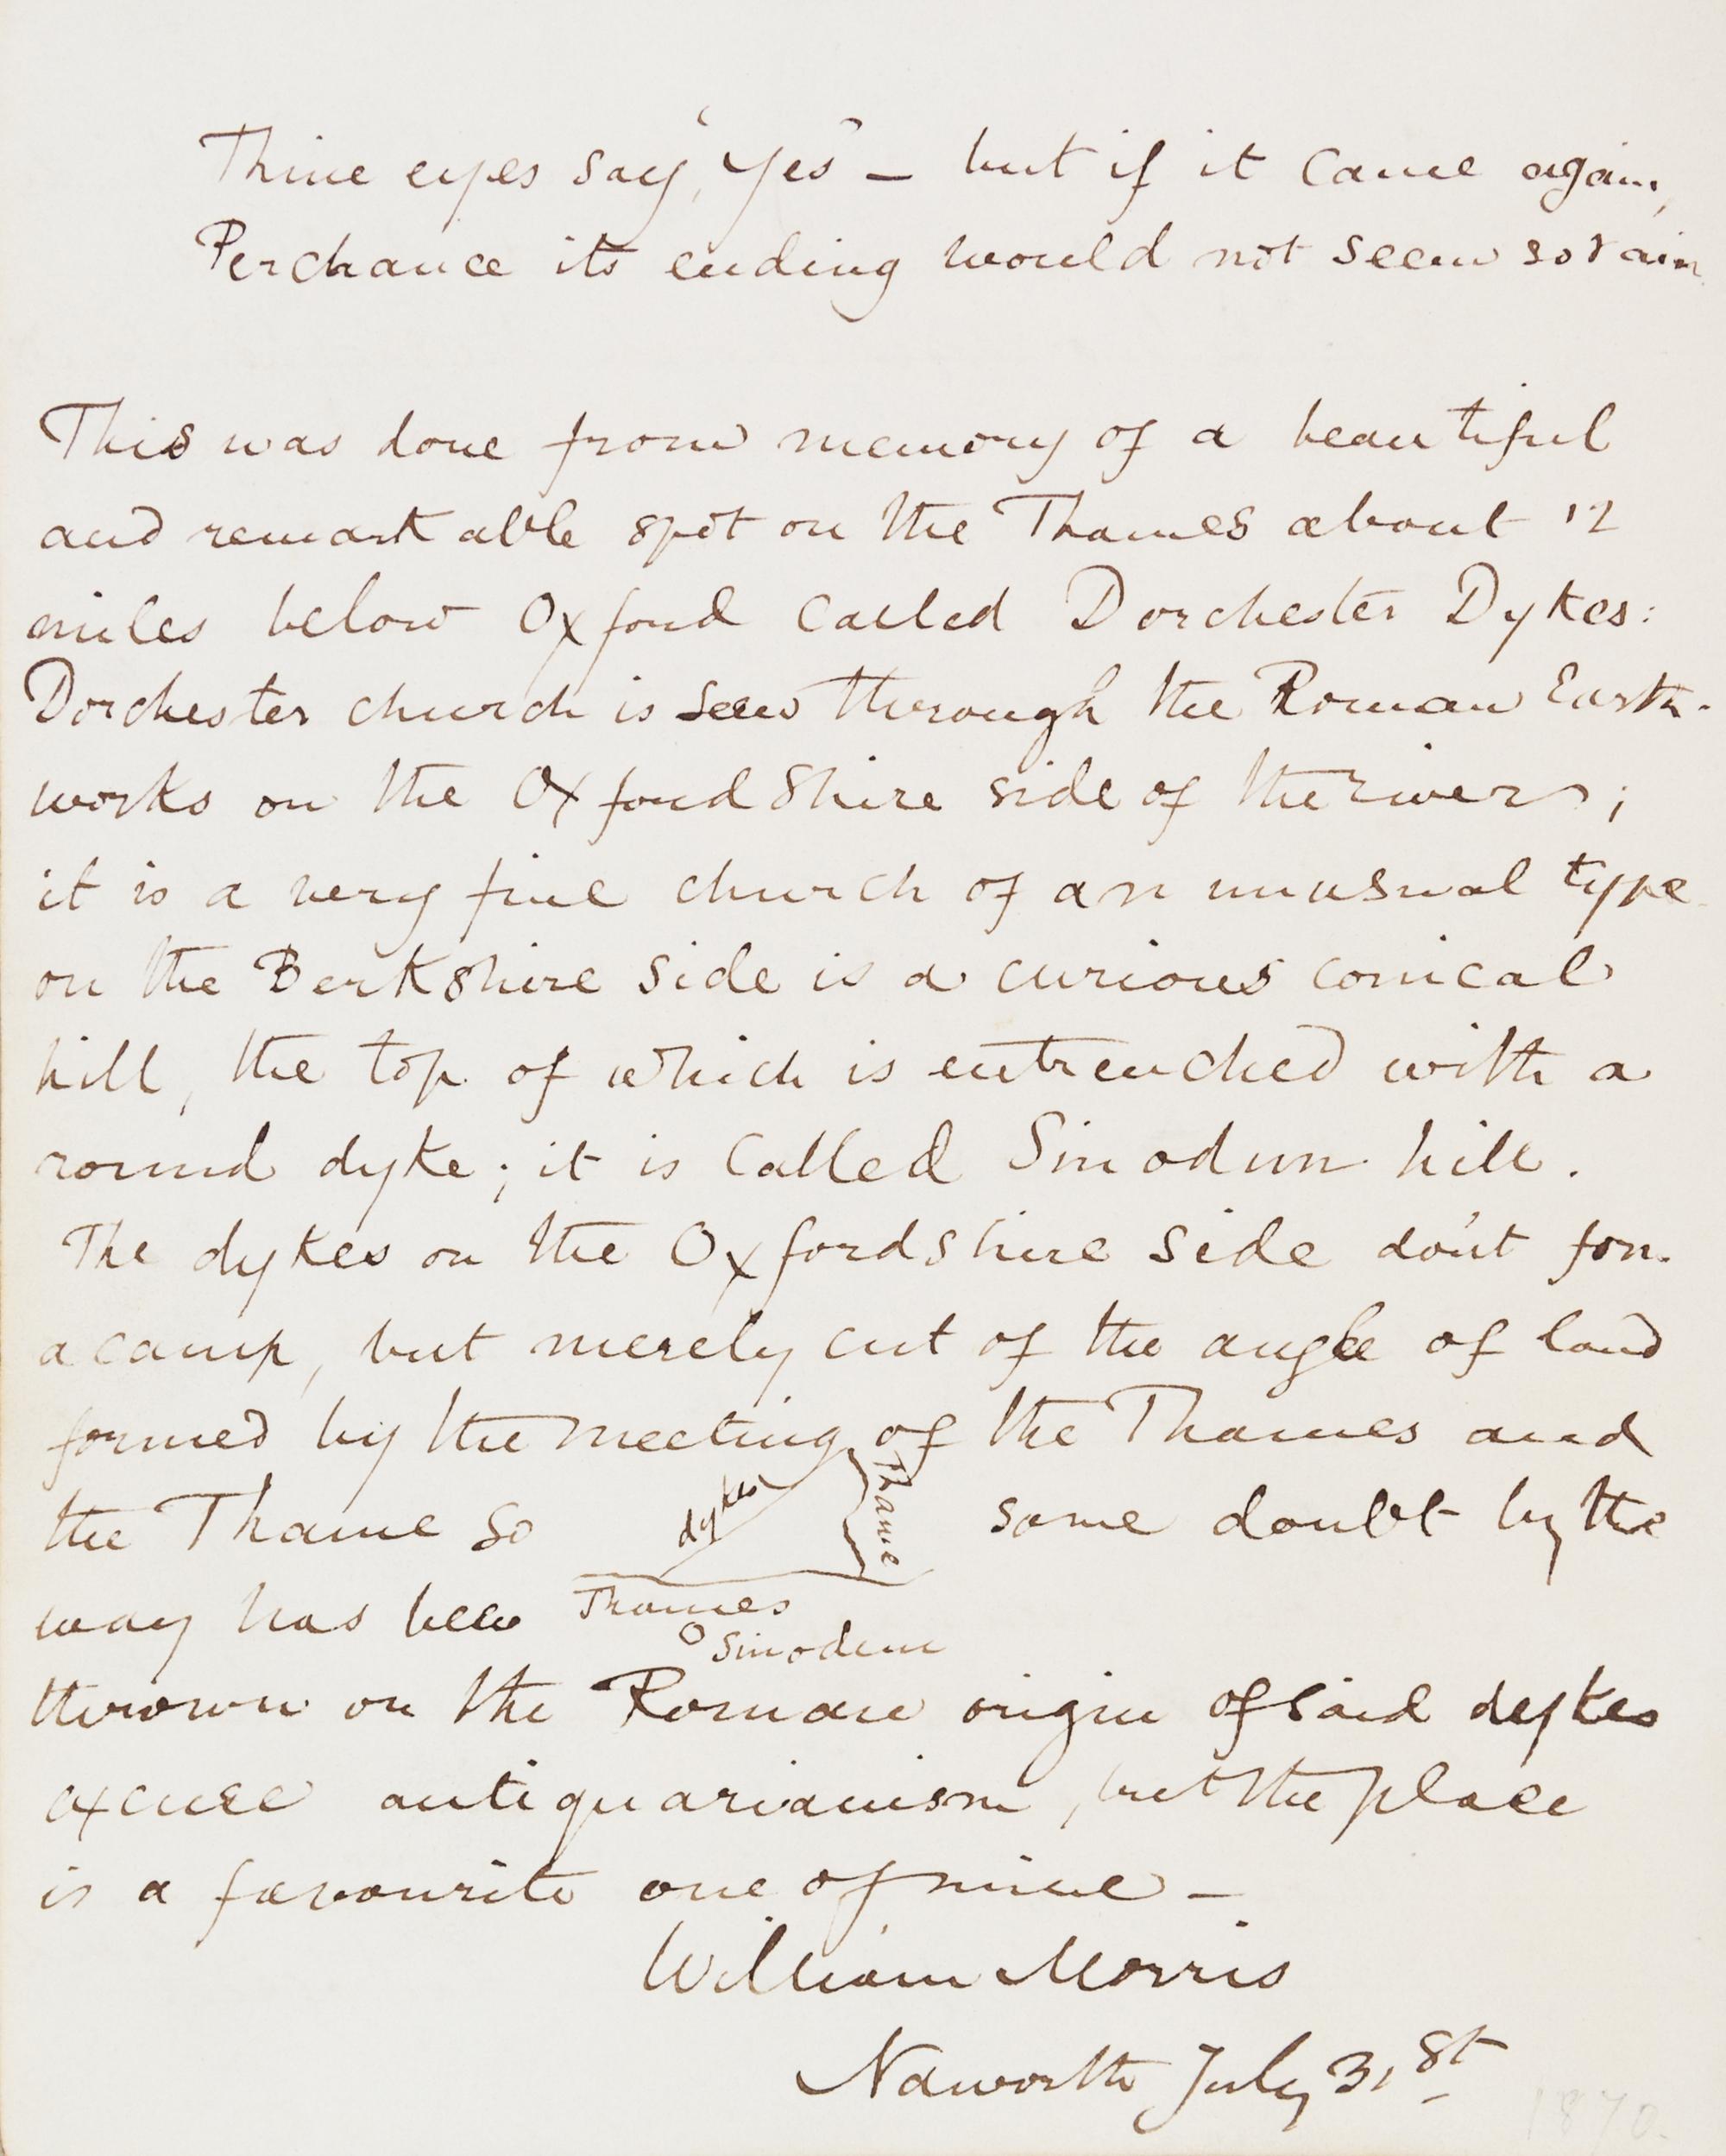 Thine eyes say, 'Yes' — but if it came again,
Perchance its ending would not seem so vain.
This was done from memory of a beautiful
and remarkable spot on the Thames about 12
miles below Oxford called Dorchester Dykes:
Dorchester church is seen through the Roman Earth-
works on the Oxfordshire side of the river;
it is a very fine church of an unusual type
on the Berkshire side is a curious conical
hill, the top of which is entrenched with a
round dyke; it is called Sinodun hill.
The dykes on the Oxfordshire side don't form
a camp, but merely cut of the angle of land
formed by the meeting of the Thames and
the Thame so dykes Thame some doubt by the
way has been Thames
Sinodun
thrown on the Roman origin of said dykes
excuse antiquarianism, but the place
is a favourite one of mine —
William Morris
Naworth July 31st
1870.